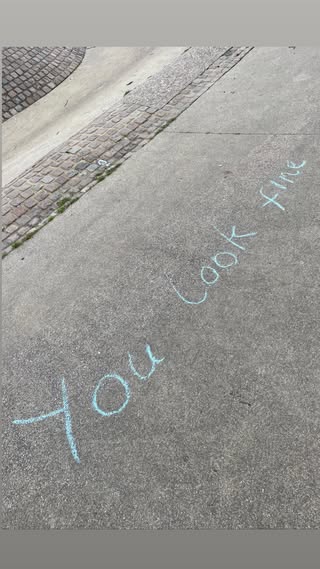 You look fine